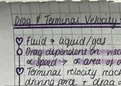 Drag & Terminal Velocity
Fluid = liquid/gas
Drag dependent on
α speed → α area of
Terminal velocity
driving force = drag